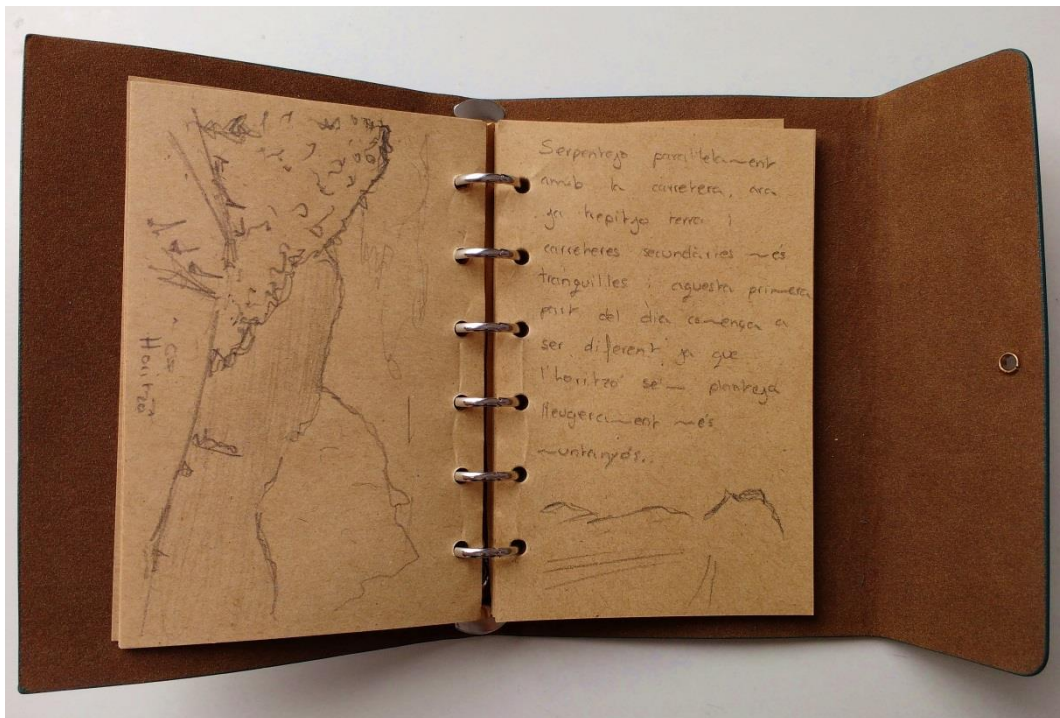 Horitzó
Serpentejo paral·lelament
amb la carretera, ara
ja trepitjo terra i
carreteres secundàries més
tranquilles i aquesta primera
part del dia comença a
ser diferent, ja que
l'horitzó se'm planteja
lleugerament més
muntanyós.